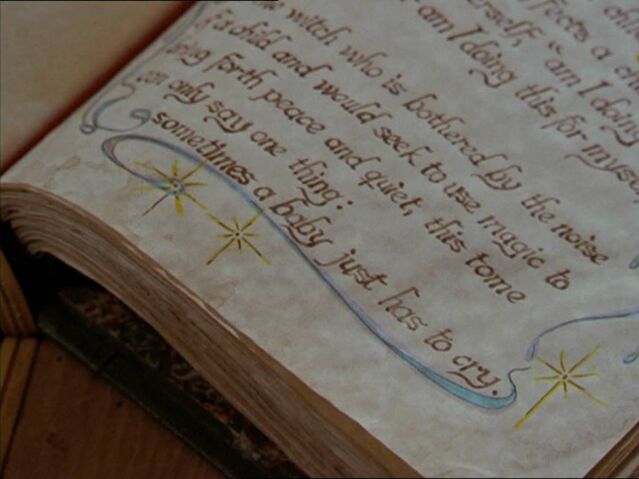 ffects a chi
erself, "am I doing
am I doing this for myse
the witch who is bothered by the noise
of a child and would seek to use magic to
bring forth peace and quiet, this tome
can only say one thing:
sometimes a baby just has to cry.